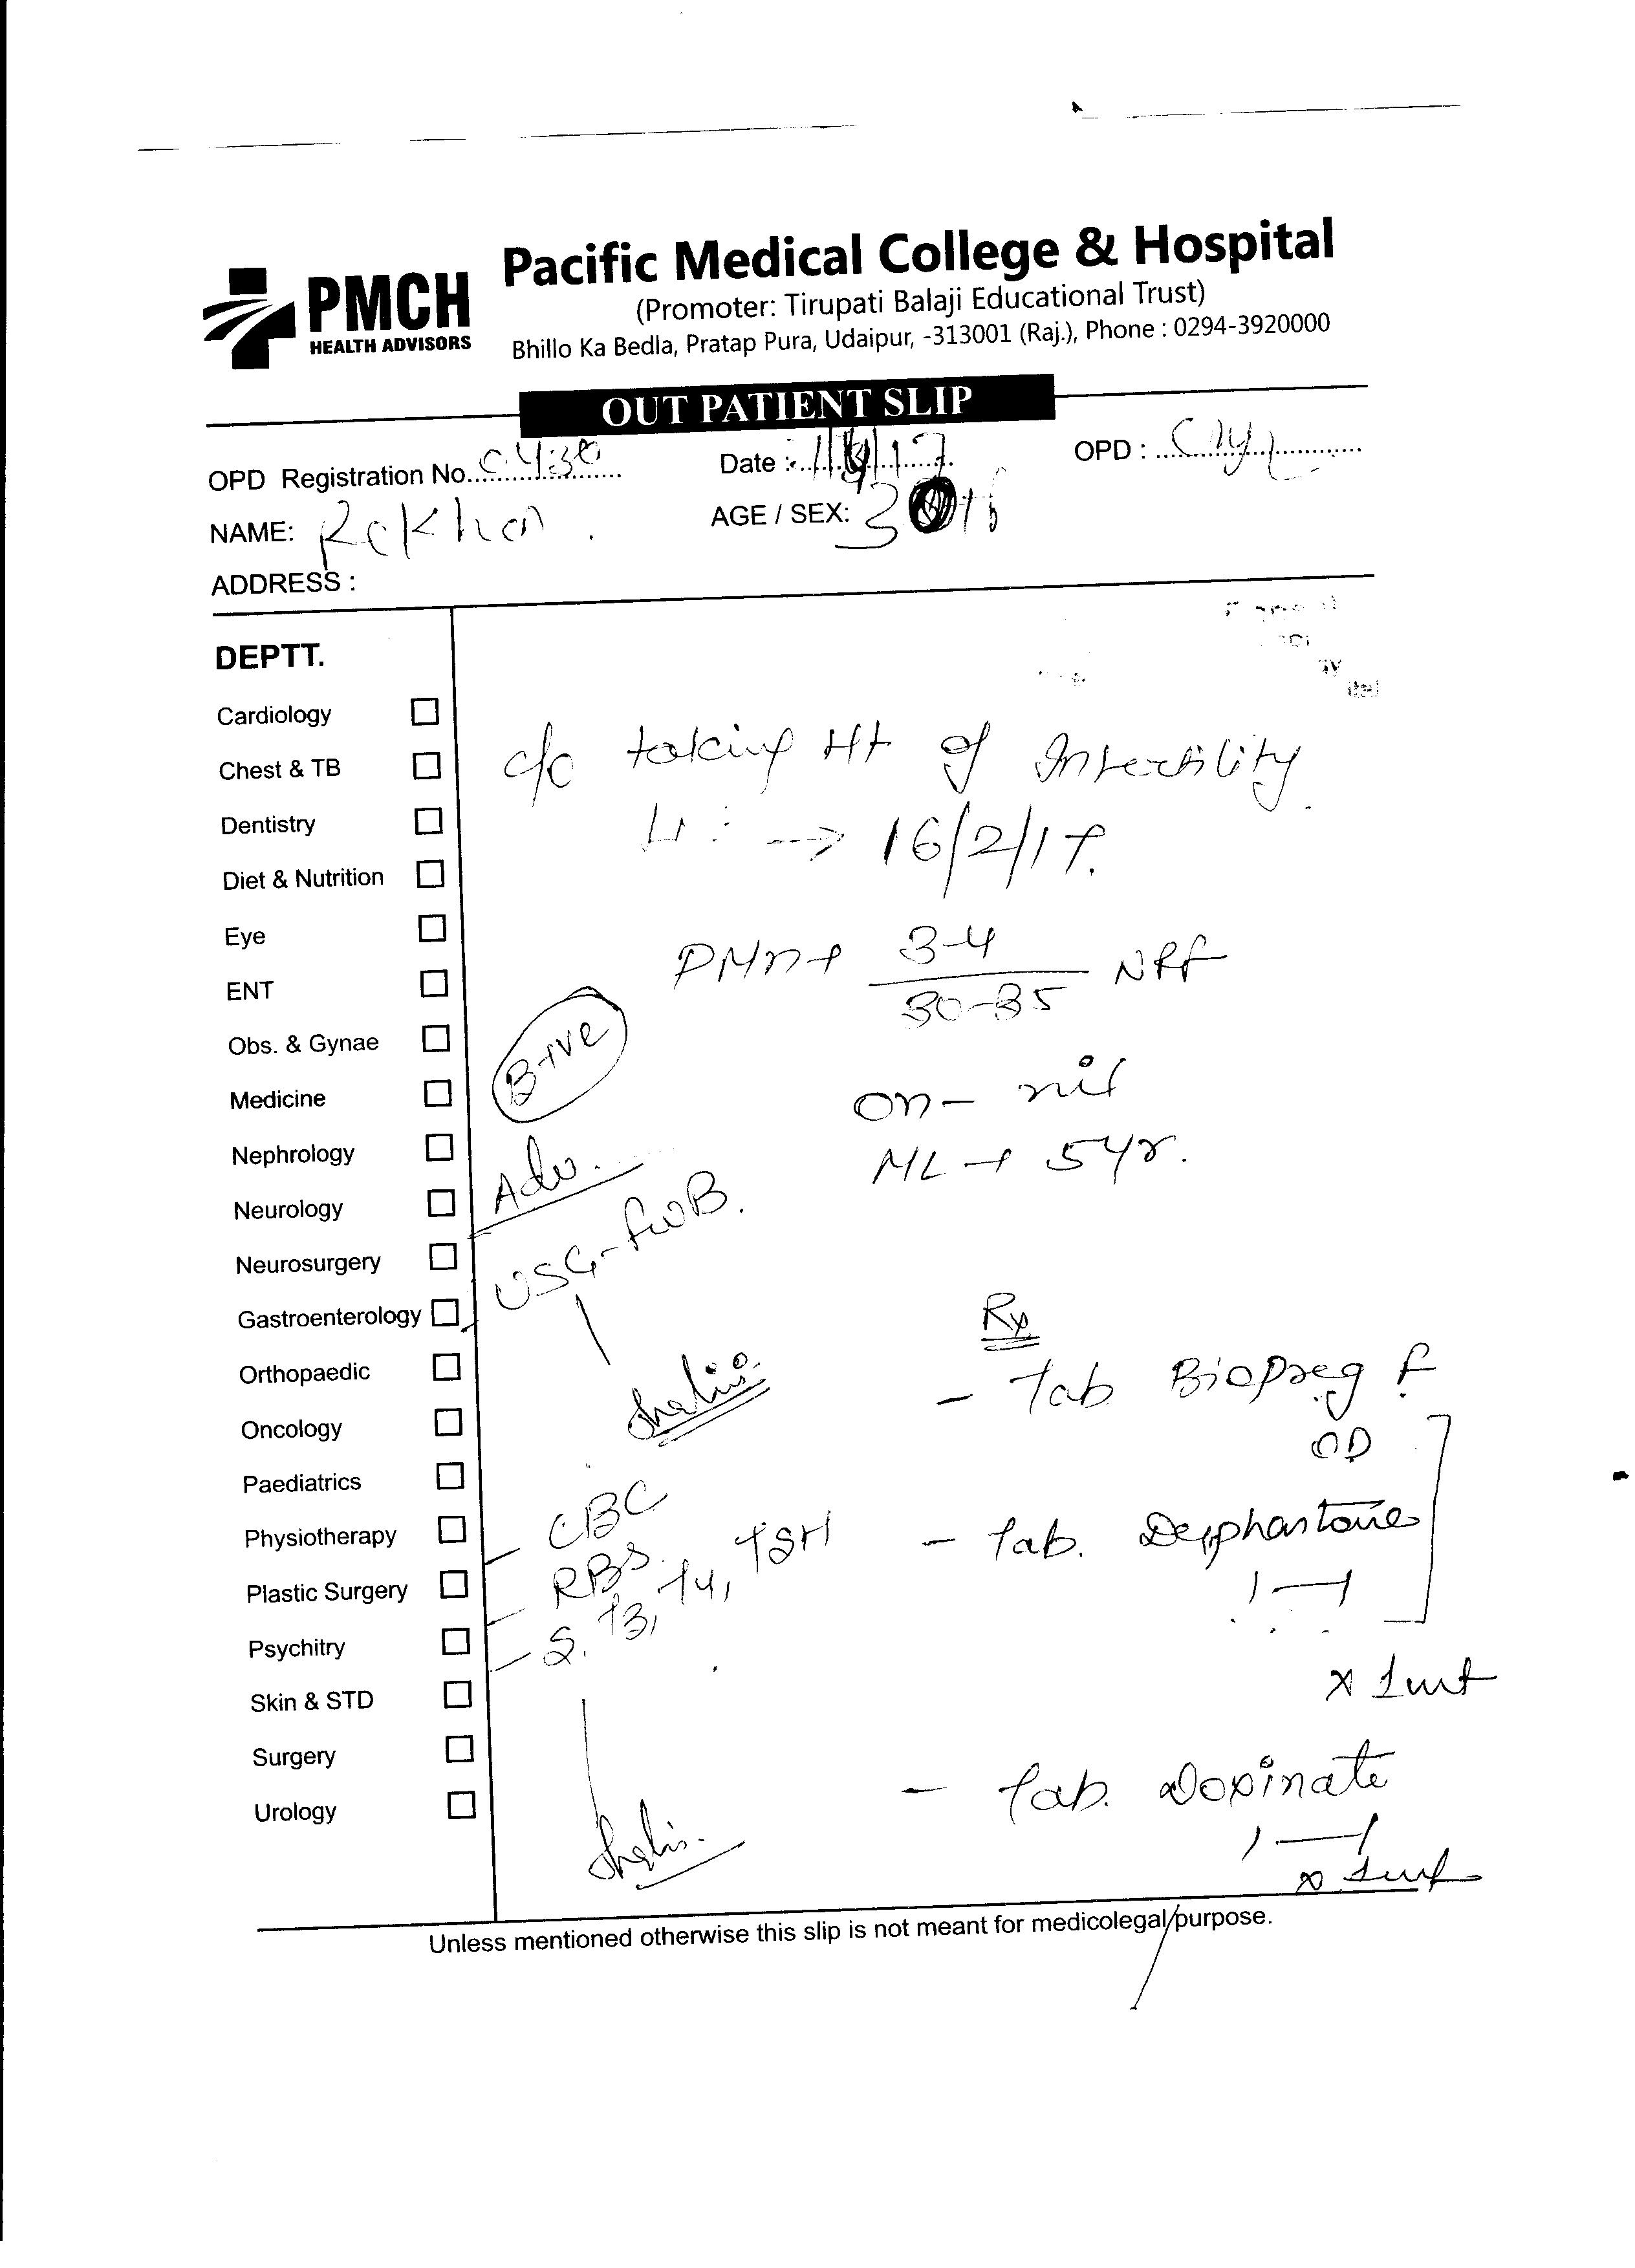 PMCH
HEALTH ADVISORS
Pacific Medical College & Hospital
(Promoter: Tirupati Balaji Educational Trust)
Bhillo Ka Bedla, Pratap Pura, Udaipur, -313001 (Raj.), Phone : 0294-3920000
OUT PATIENT SLIP
OPD Registration No. C430 Date : OPD :
NAME: Rekha AGE / SEX:
ADDRESS :
DEPTT.
Cardiology
Chest & TB
Dentistry
Diet & Nutrition
Eye
ENT
Obs. & Gynae
Medicine
Nephrology
Neurology
Neurosurgery
Gastroenterology
Orthopaedic
Oncology
Paediatrics
Physiotherapy
Plastic Surgery
Psychitry
Skin & STD
Surgery
Urology
c/o taking of Infertility
→ 16/2/17.
3-4
30-35
B+ve
on - nil
ML → 5yr.
Adv.
USG-FWB.
CBC
RBS
S. T3, T4, TSH
Rx
- Tab Biopreg F
OD
- Tab. Depphastone
1—1
- Tab. Doxinate
1—1
Unless mentioned otherwise this slip is not meant for medicolegal purpose.